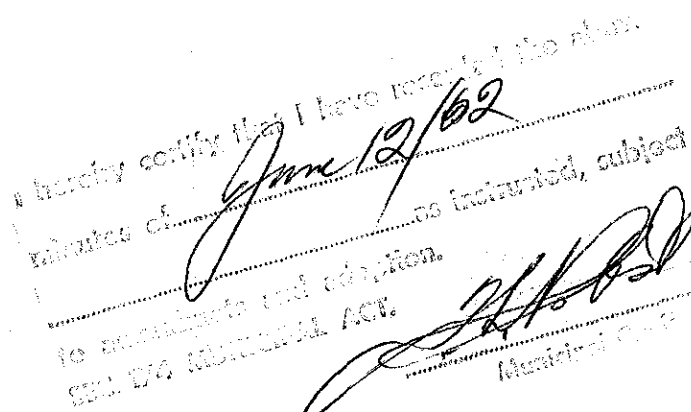 I hereby certify that I have recorded the above
minutes of June 12/62
as instructed, subject
to amendments and adoption.
SEC. MUNICIPAL ACT.
Municipal